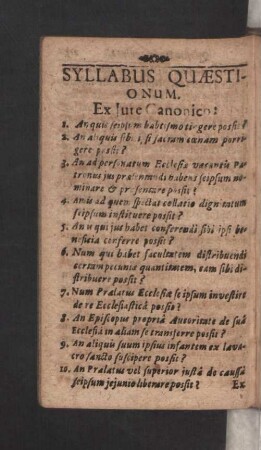 SYLLABUS QUÆSTI-
ONUM.
Ex Jure Canonico:
1. An quis seipsum baptismo tingere possit?
2. An aliquis sibi, si sacram cœnam porrigere possit?
3. An ad personatum Ecclesiæ vacantis Patronus jus præsentandi habens seipsum nominare & præsentare possit?
4. An is ad quem spectat collatio dignitatum seipsum instituere possit?
5. An is qui jus habet conferendi sibi ipsi beneficia conferre possit?
6. Num qui habet facultatem distribuendi certam pecuniæ quantitatem, eam sibi distribuere possit?
7. Num Prælatus Ecclesiæ se ipsum investire de re Ecclesiasticâ possit?
8. An Episcopus propriâ Autoritate de suâ Ecclesiâ in aliam se transferre possit?
9. An aliquis suum ipsius infantem ex lavacro sancto suscipere possit?
10. An Prælatus vel superior justâ de caussâ seipsum jejunio liberare possit?
Ex